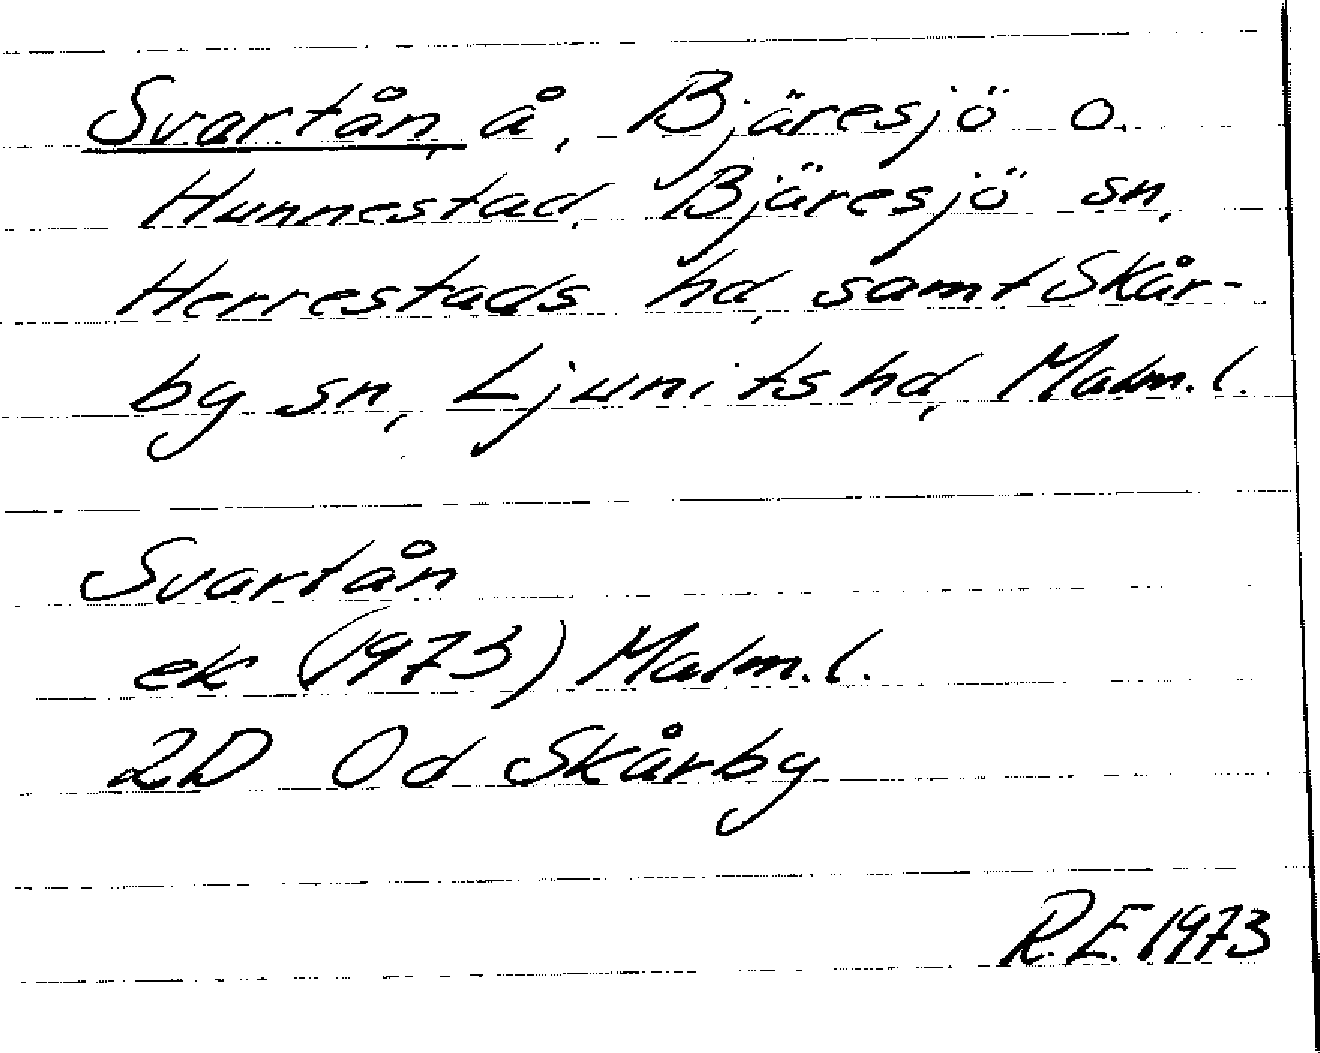 Svartån, å, Bjäresjö o.
Hunnestad, Bjäresjö sn,
Herrestads hd, samt Skår-
by sn, Ljunits hd, Malm. l.
Svartån
ek (1973) Malm. l.
2D 0d Skårby
R.E. 1973